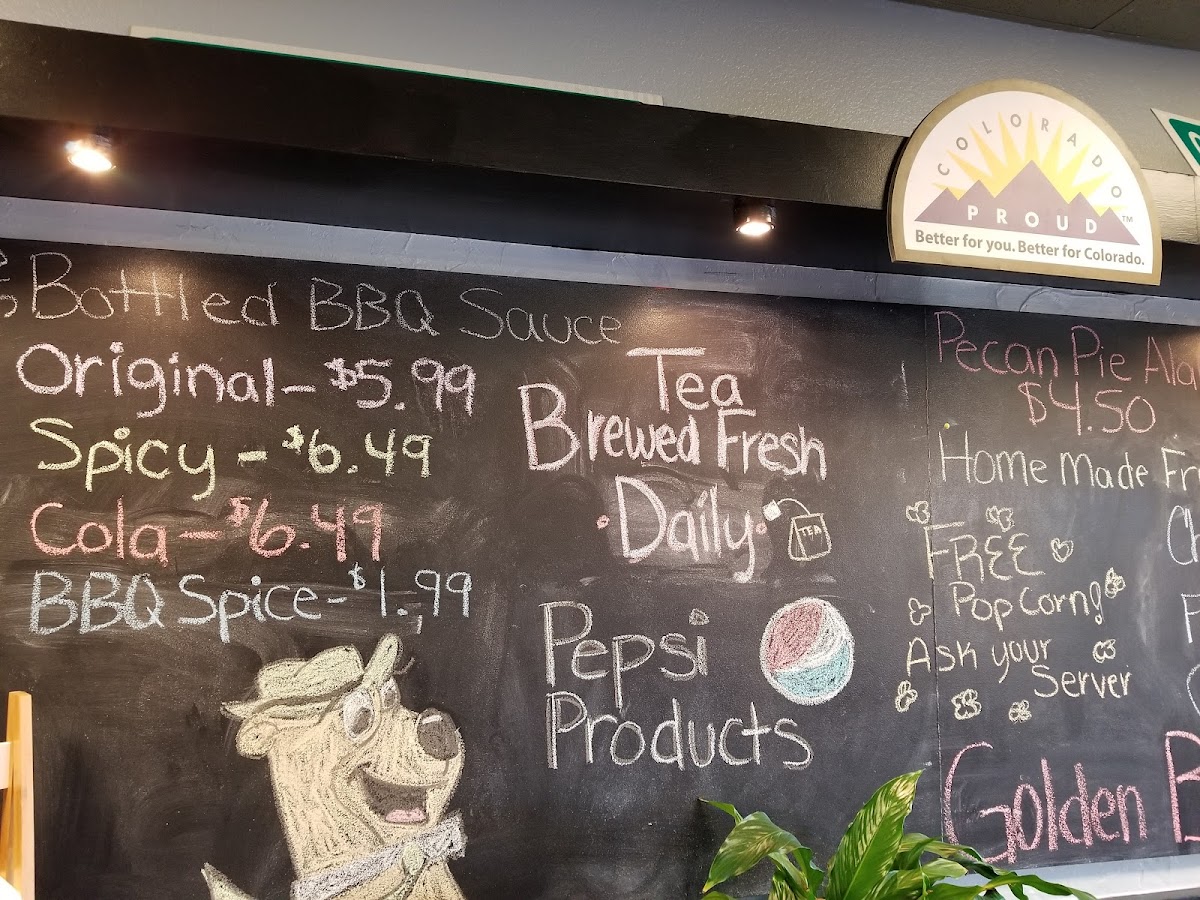 Bottled BBQ Sauce
Original - $5.99
Spicy - $6.49
Cola - $6.49
BBQ Spice - $1.99
Tea
Brewed Fresh
Daily
TEA
Pepsi
Products
COLORADO
PROUD™
Better for you. Better for Colorado.
Pecan Pie Ala
$4.50
Home made Fr
FREE
Popcorn!
Ask your
Server
Golden B